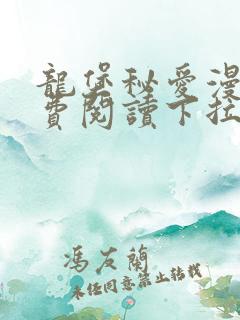 龍堡秘愛漫
費閱讀下拉
馮友蘭
未經同意禁止轉載